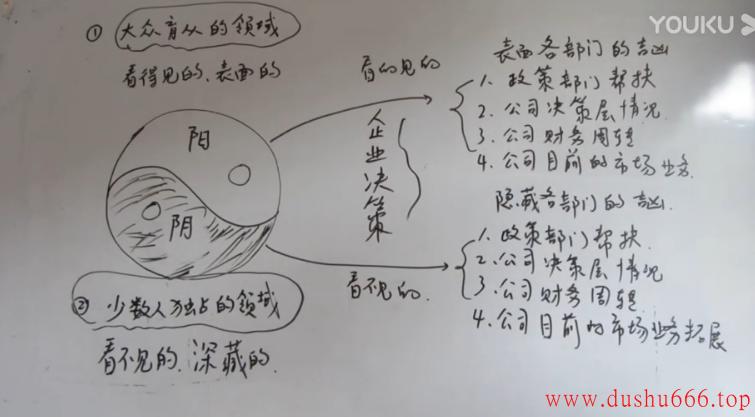 YOUKU
① 大众盲从的领域
看得见的、表面的
阳
阴
② 少数人独占的领域
看不见的、深藏的
看的见的
企业决策
看不见的.
表面各部门的吉凶
1. 政策部门帮扶
2. 公司决策层情况
3. 公司财务周转
4. 公司目前的市场业务
隐藏各部门的吉凶
1. 政策部门帮扶
2. 公司决策层情况
3. 公司财务周转
4. 公司目前的市场业务拓展
www.dushu666.top